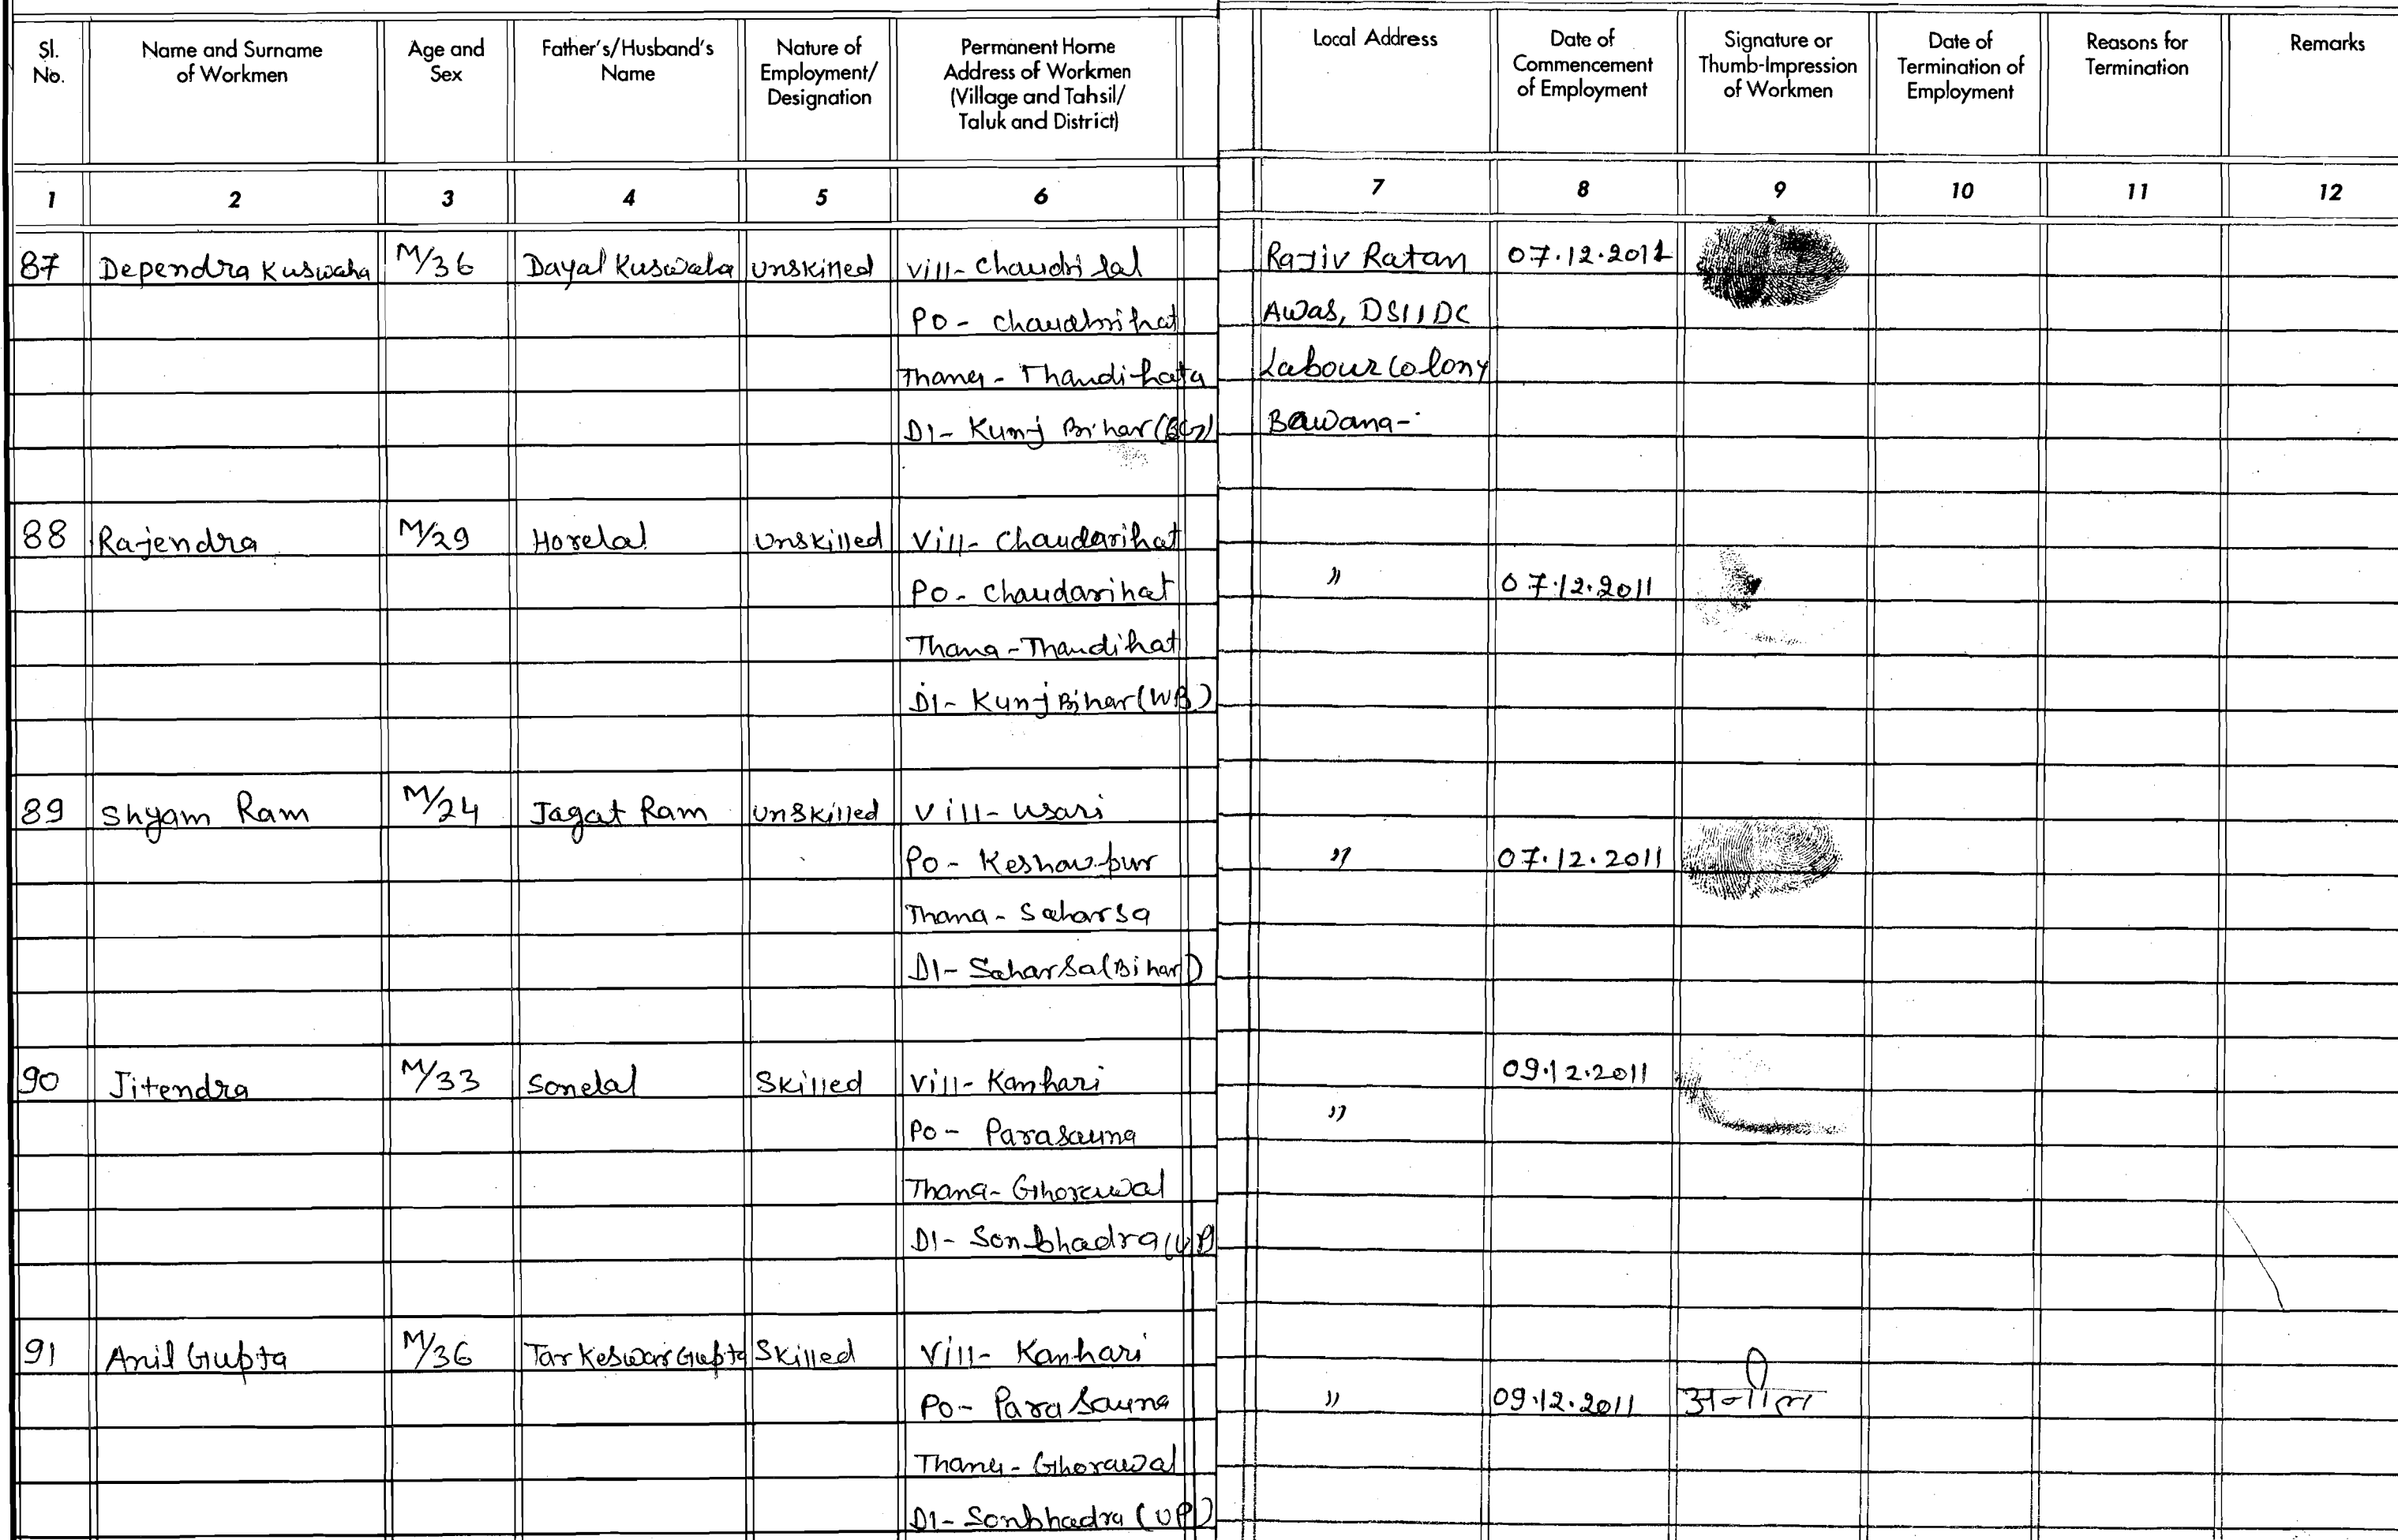 Sl. No. Name and Surname of Workmen Age and Sex Father's/Husband's Name Nature of Employment/ Designation Permanent Home Address of Workmen (Village and Tahsil/ Taluk and District) Local Address Date of Commencement of Employment Signature or Thumb-Impression of Workmen Date of Termination of Employment Reasons for Termination Remarks
1 2 3 4 5 6 7 8 9 10 11 12
87 Dependra Kuswaha M/36 Dayal Kuswala unskilled Vill- Chaudri Rajiv Ratan 07.12.2011
PO - Chaudhrihat Awas, DSIIDC
Thana - Thandihata Labour Colony
DI- Kunj Bihar Bawana-
88 Rajendra M/29 Horelal unskilled Vill- Chaudarihat
PO- Chaudarihat " 07.12.2011
Thana - Thandihat
DI- Kunj Bihar (WB)
89 Shyam Ram M/24 Jagat Ram unskilled Vill- usari
PO- Keshawpur " 07.12.2011
Thana - Saharsa
DI- Saharsa (Bihar)
90 Jitendra M/33 Sonelal Skilled Vill- Kanhari 09.12.2011
PO- Parasauna "
Thana- Ghorawal
DI- Sonbhadra (UP)
91 Anil Gupta M/36 Tarkeswar Gupta Skilled Vill- Kanhari
PO- Parasauna " 09.12.2011 अनील
Thana - Ghorawal
DI- Sonbhadra (UP)